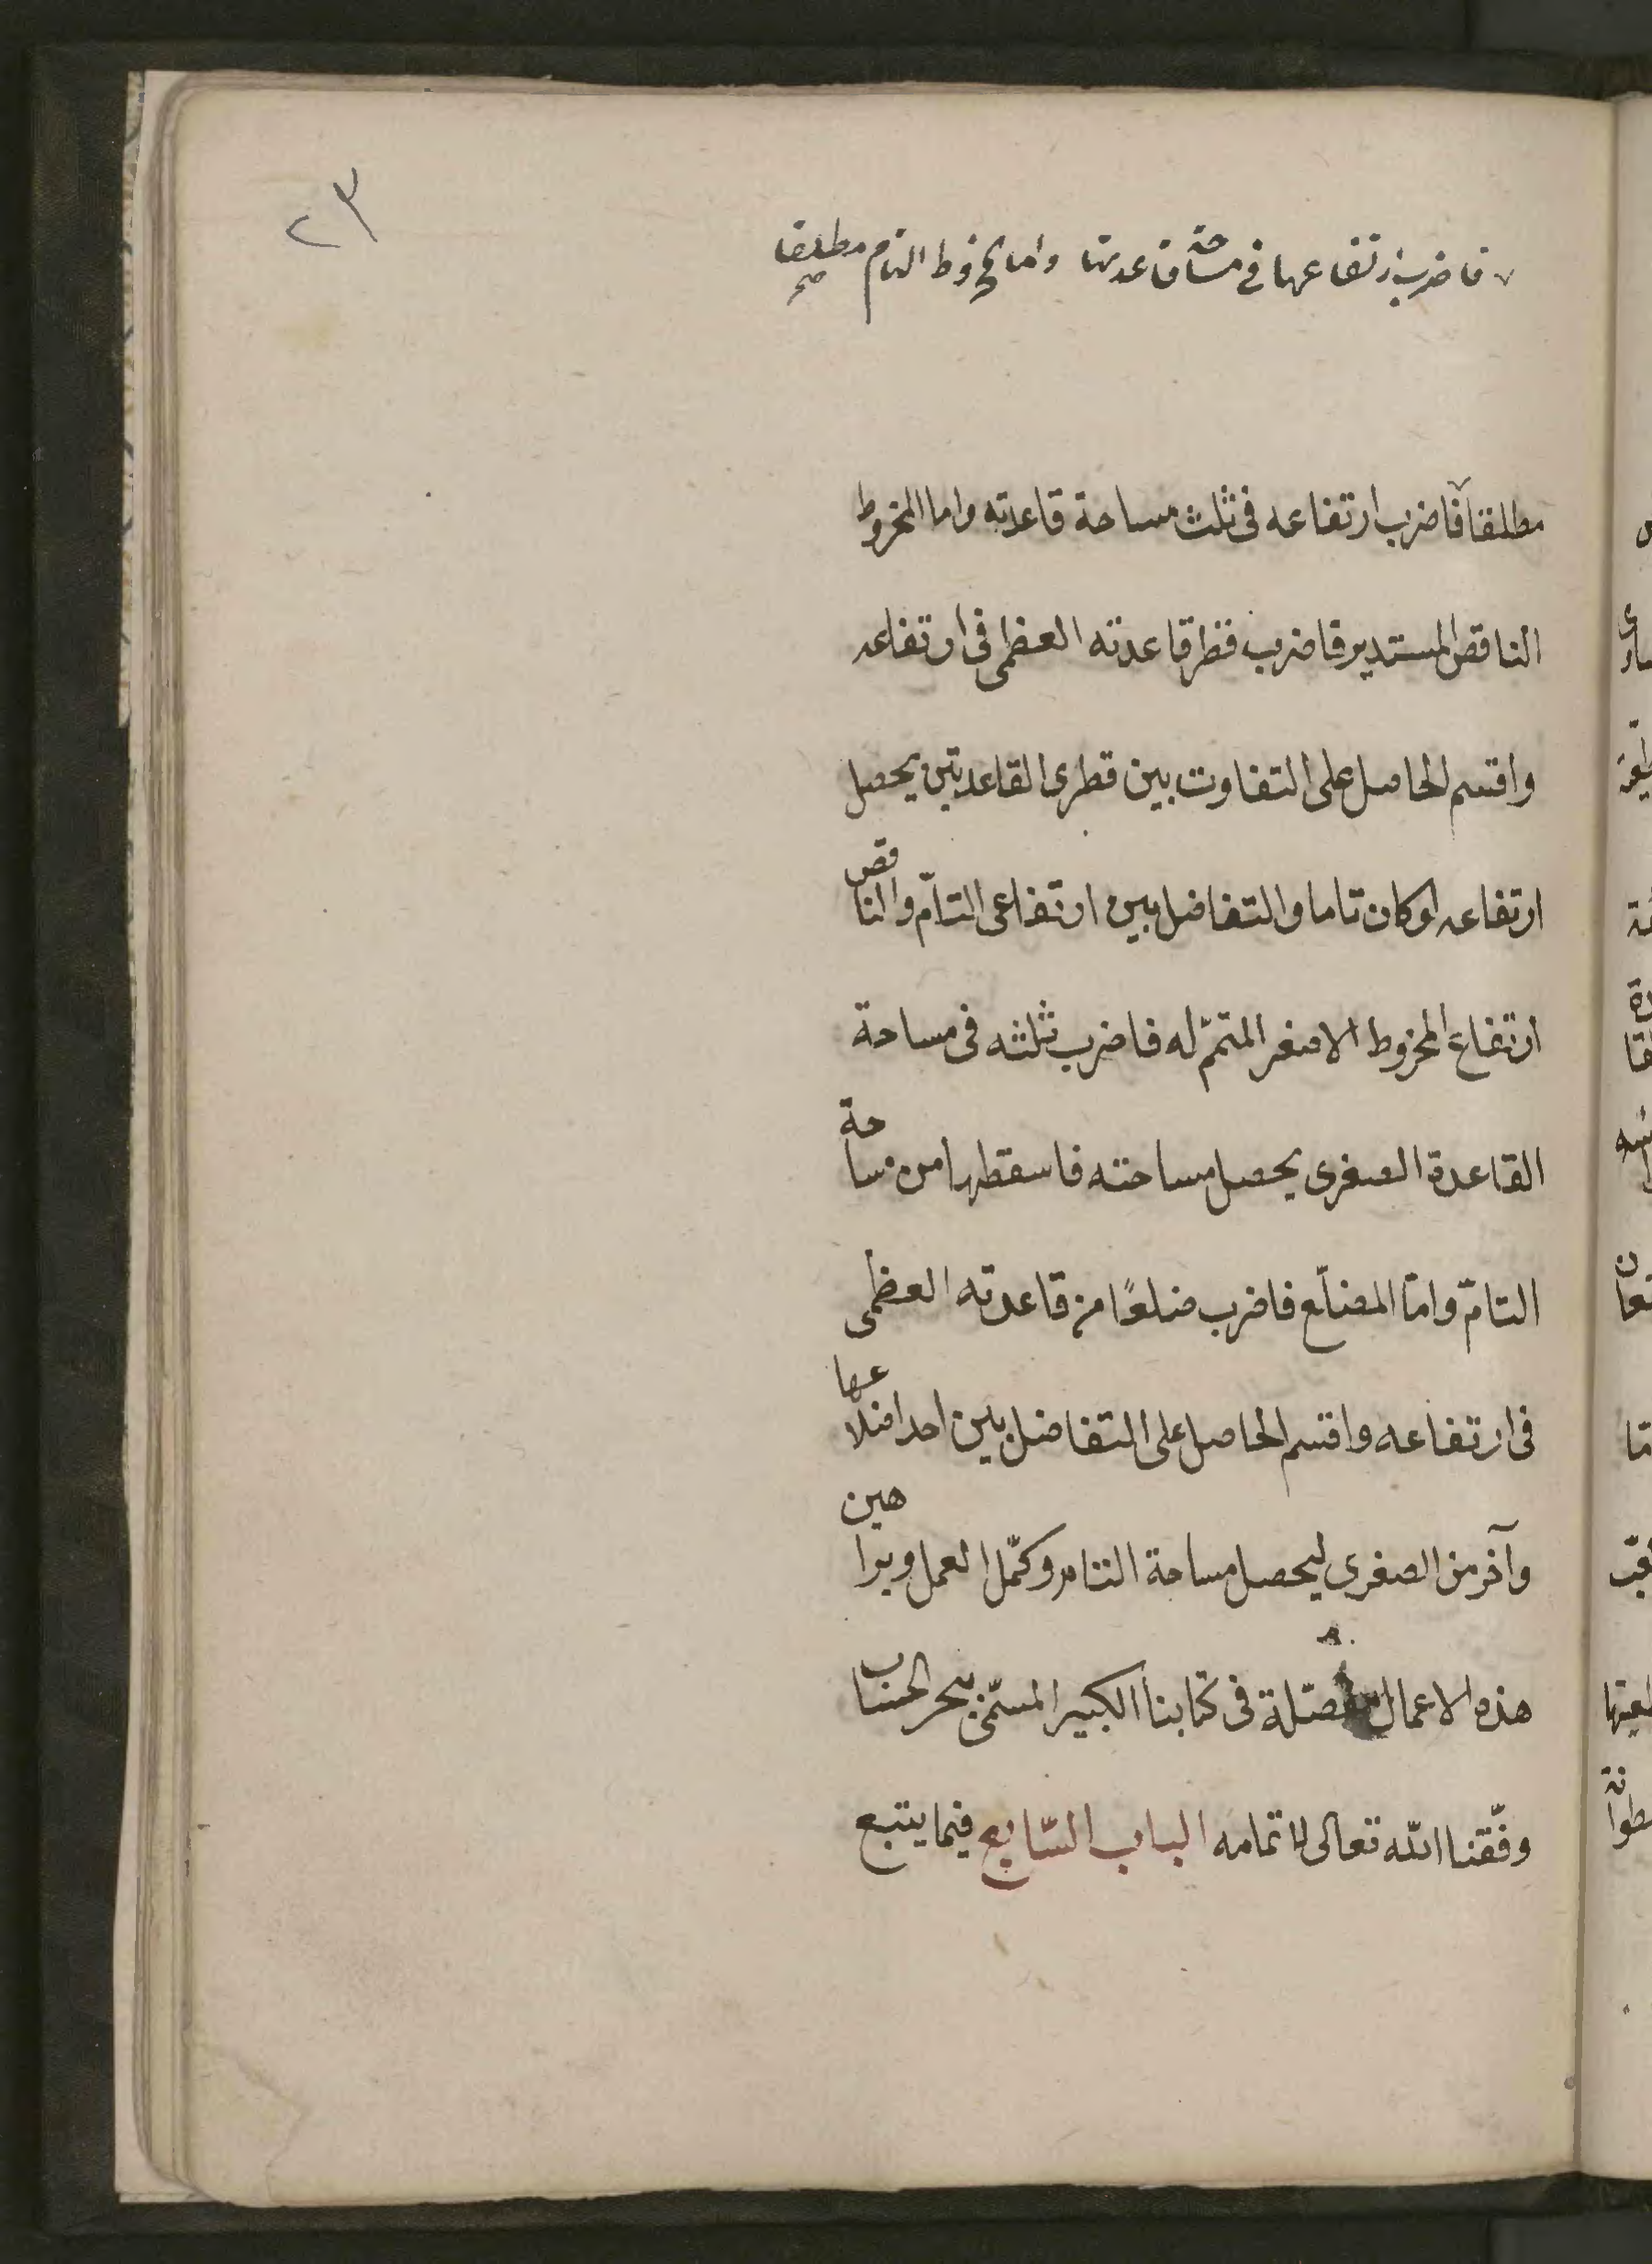 ٢٣
فاضرب ارتفاعها في مساحة قاعدتها واما المخروط التام مطلقا صح
مطلقا فاضرب ارتفاعه فى ثلث مساحة قاعدته واما المخروط
الناقص المستدير فاضرب قطر قاعدته العظمى فى ارتفاعه
واقسم الحاصل على التفاوت بين قطرى القاعدتين يحصل
ارتفاعه لوكان تاما والتفاضل بين ارتفاعى التامّ والناقص
ارتفاع المخروط الاصغر المتمّم له فاضرب ثلثه فى مساحة
القاعدة الصغرى يحصل مساحته فاسقطها من مساحة
التامّ وامّا المضلّع فاضرب ضلعًا من قاعدته العظمى
فى ارتفاعه واقسم الحاصل على التفاضل بين احد اضلاعها
وآخر من الصغرى ليحصل مساحة التام وكمّل العمل وبراهين
هذه الاعمال مفصّلة فى كتابنا الكبير المسمّى ببحر الحساب
وفّقنا اللّه تعالى لاتمامه الباب السّابع فيما يتبع